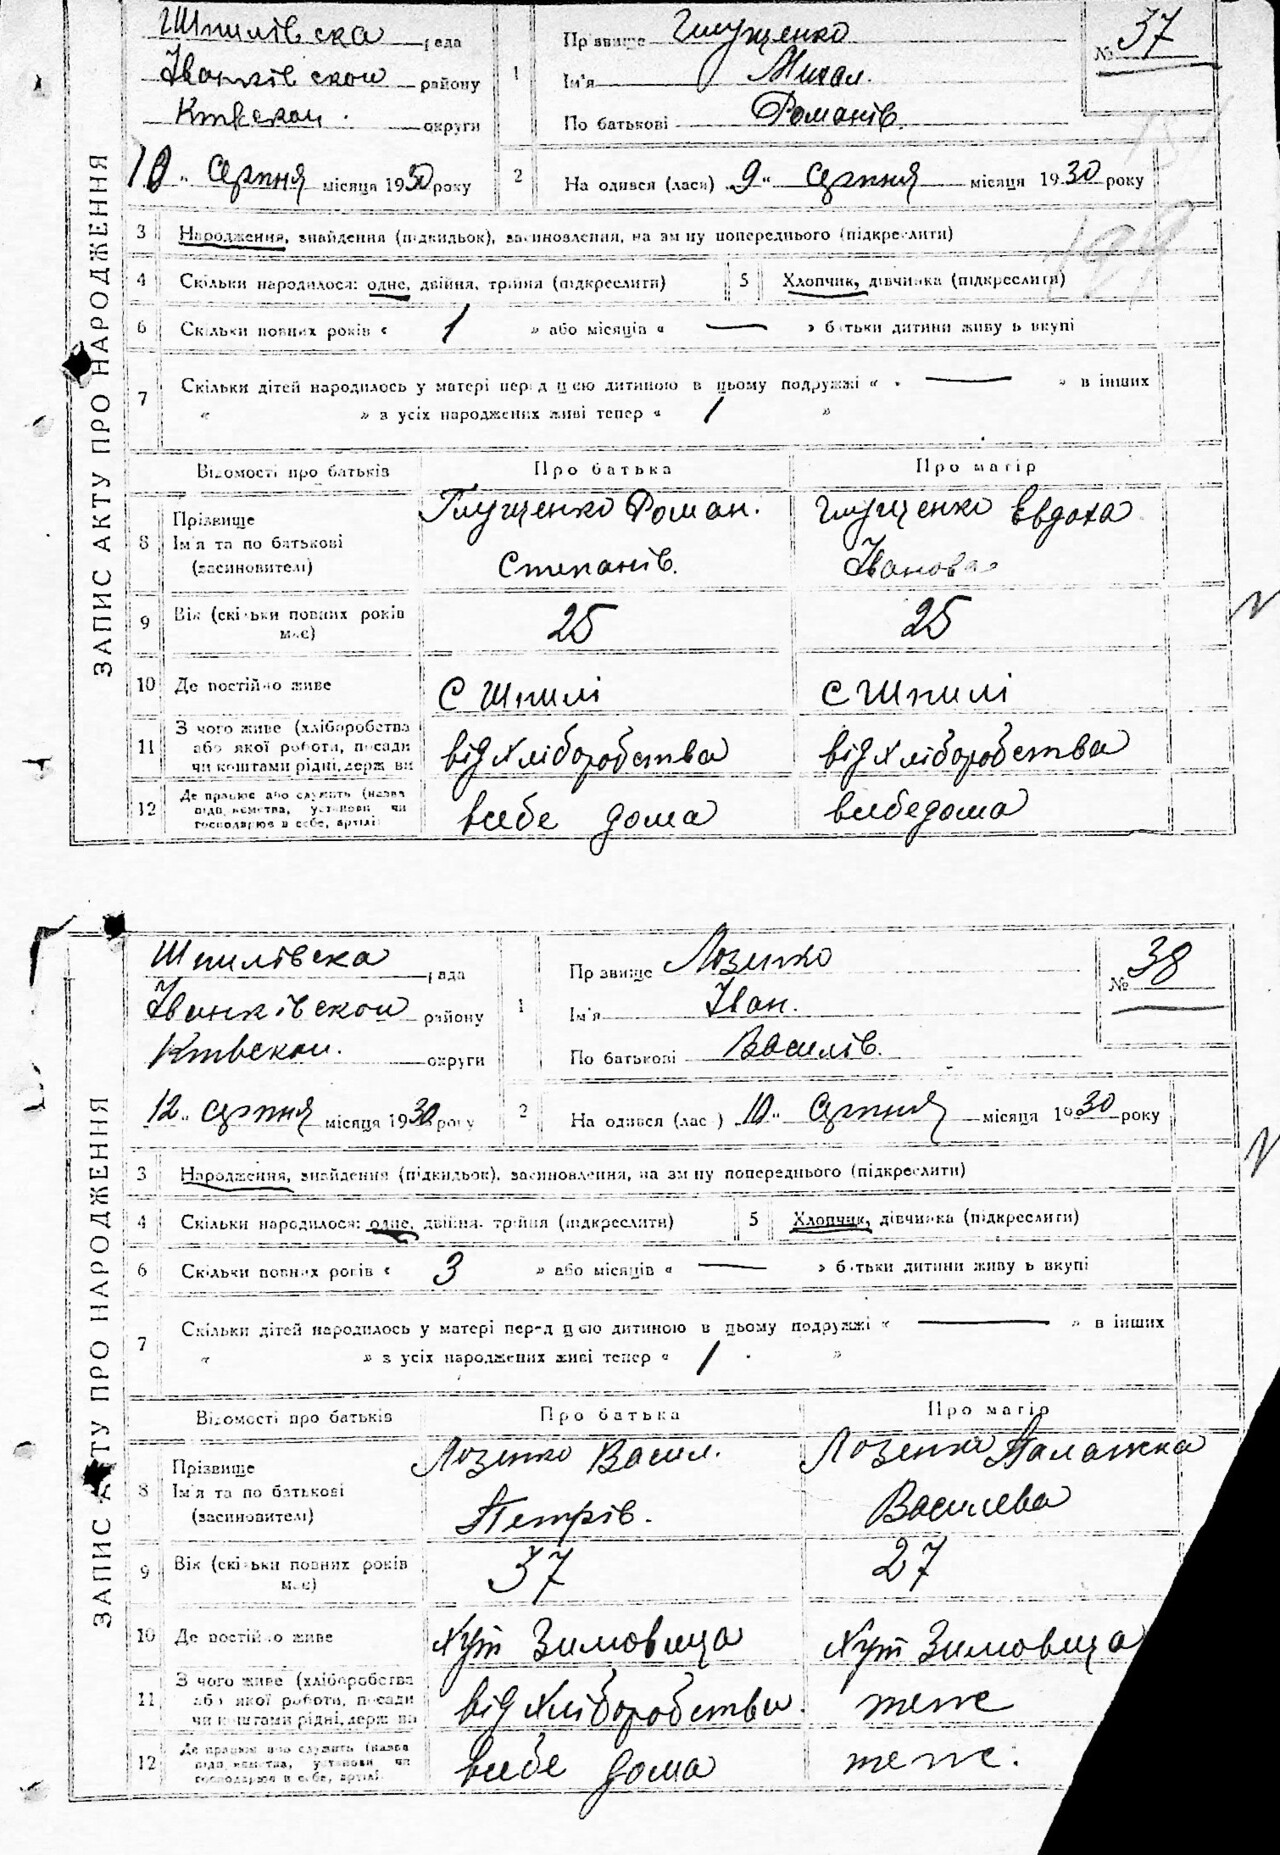 ЗАПИС АКТУ ПРО НАРОДЖЕННЯ
Шпилівска рада
Іванківскои району
Київскои. округи
10 " Серпня місяця 1930 року
1 Прізвище Глущенко
Ім'я Михал.
По батькові Романів.
№ 37
2 На одився (лася) 9 " Серпня місяця 1930 року
3 Народження, знайдення (підкидьок), засиновлення, на зм ну попереднього (підкреслити)
4 Скільки народилося: одне, двійня, трійня (підкреслити)
5 Хлопчик, дівчинка (підкреслити)
6 Скільки повних років « 1 » або місяців « — » батьки дитини живу ь вкупі
7 Скільки дітей народилось у матері перед цією дитиною в цьому подружжі « — » в інших
« » з усіх народжених живі тепер « 1 »
Відомості про батьків Про батька Про матір
8 Прізвище
Ім'я та по батькові
(засиновителі)
Глущенко Роман.
Степанів.
Глущенко Евдоха
Іванова
9 Вік (скільки повних років має) 25 25
10 Де постійно живе С Шпилі С Шпилі
11 З чого живе (хліборобства
або якої роботи, посади
чи коштами рідні, держ ви
від хліборобства від хліборобства
12 Де працює або служить (назва
підп ємства, установи чи
господарює в себе, артілі
всебе дома всебе дома
ЗАПИС АКТУ ПРО НАРОДЖЕННЯ
Шпилівска рада
Іванківскои району
Київскои. округи
12 " серпня місяця 1930 року
1 Пр звище Лозенко
Ім'я Іван.
По батькові Василів.
№ 38
2 На одився (лас ) 10 " Серпня місяця 1930 року
3 Народження, знайдення (підкидьок), засиновлення, на зм ну попереднього (підкреслити)
4 Скільки народилося: одне, двійня, трійня (підкреслити)
5 Хлопчик, дівчинка (підкреслити)
6 Скільки повних років « 3 » або місяців « — » батьки дитини живу ь вкупі
7 Скільки дітей народилось у матері перед цією дитиною в цьому подружжі « — » в інших
« » з усіх народжених живі тепер « 1 »
Відомості про батьків Про батька Про матір
8 Прізвище
Ім'я та по батькові
(засиновителі)
Лозенко Васил.
Петрів.
Лозенко Палажка
Василева
9 Вік (скільки повних років має) 37 27
10 Де постійно живе Хут Зимовища Хут Зимовища
11 З чого живе (хліборобства
або якої роботи, посади
чи коштами рідні, держ ва
від хліборобства. теже
12 Де працює або служить (назва
підп ємства, установи чи
господарює в себе, артілі
всебе дома теже.